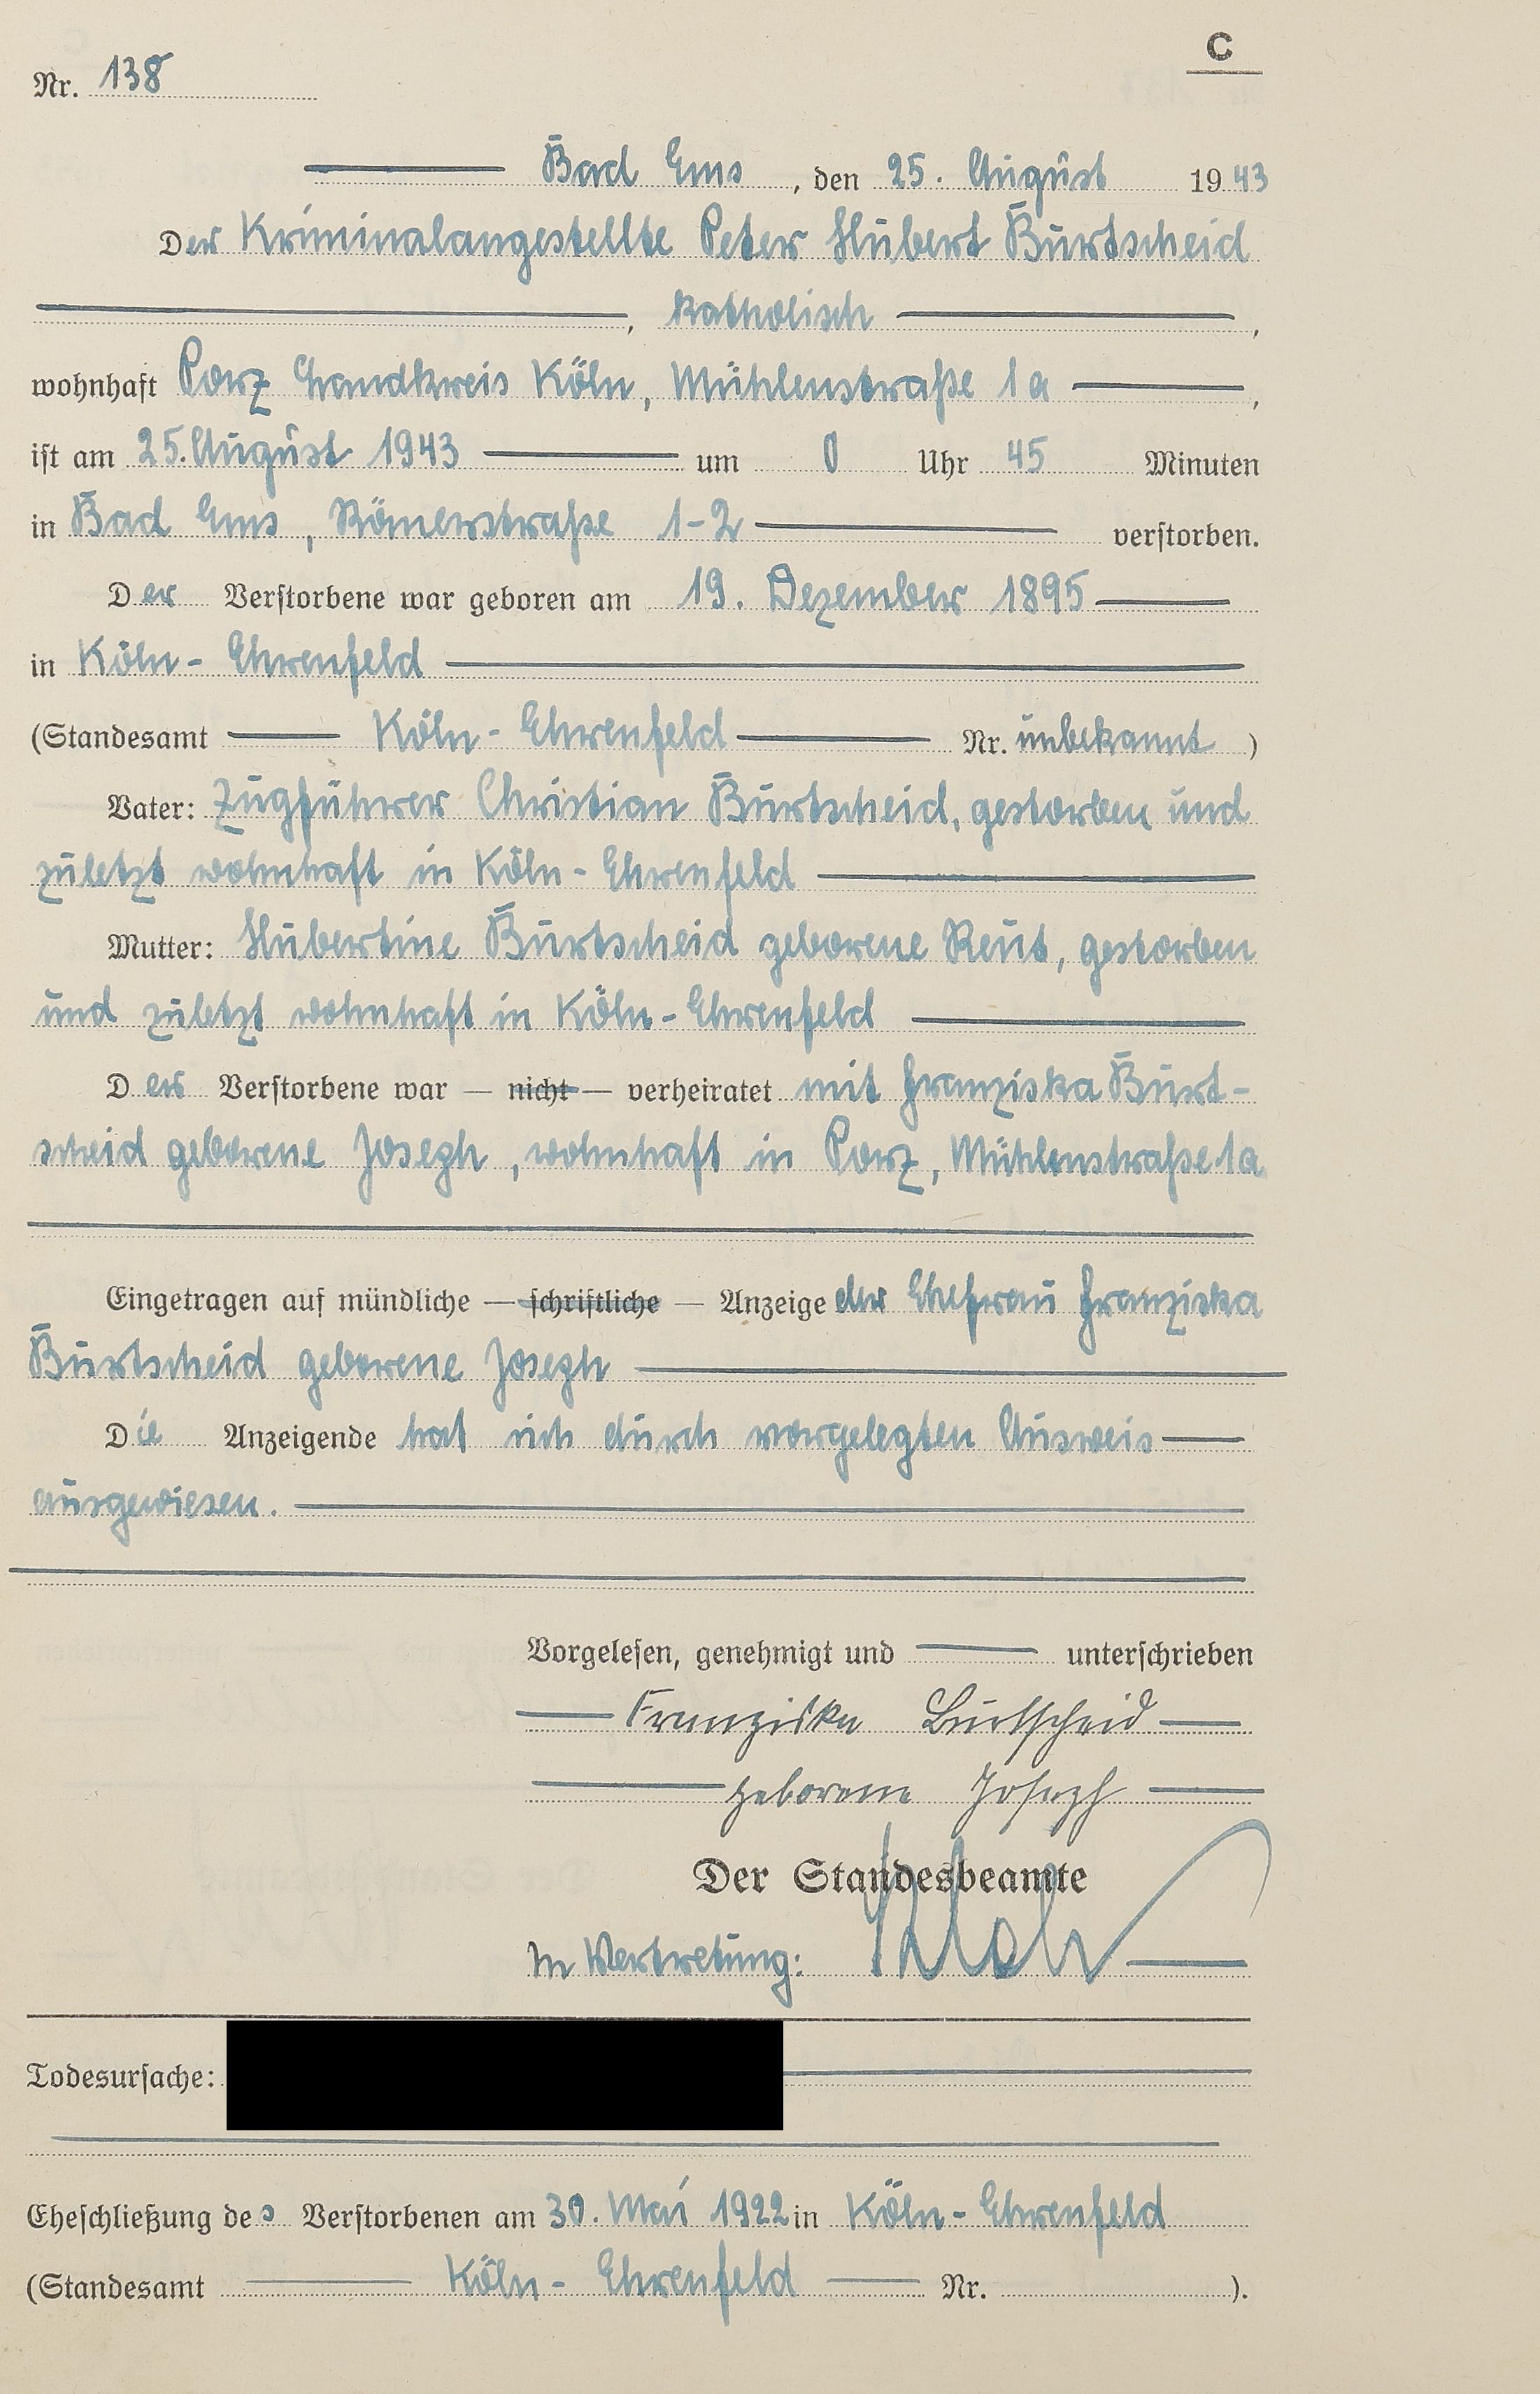 C
Nr. 138
Bad Ems, den 25. August 1943
Der Kriminalangestellte Peter Hubert Burtscheid
, katholisch ,
wohnhaft Porz Landkreis Köln, Mühlenstraße 1a ,
ist am 25. August 1943 um 0 Uhr 45 Minuten
in Bad Ems, Römerstraße 1-2 verstorben.
Der Verstorbene war geboren am 19. Dezember 1895
in Köln-Ehrenfeld
(Standesamt Köln-Ehrenfeld Nr. unbekannt )
Vater: Zugführer Christian Burtscheid, gestorben und
zuletzt wohnhaft in Köln-Ehrenfeld
Mutter: Hubertine Burtscheid geborene Reut, gestorben
und zuletzt wohnhaft in Köln-Ehrenfeld
Der Verstorbene war — nicht — verheiratet mit Franziska Burt-
scheid geborene Joseph, wohnhaft in Porz, Mühlenstraße 1a
Eingetragen auf mündliche — schriftliche — Anzeige der Ehefrau Franziska
Burtscheid geborene Joseph
Die Anzeigende hat sich durch vorgelegten Ausweis
ausgewiesen.
Vorgelesen, genehmigt und unterschrieben
Franziska Burtscheid
geborene Joseph
Der Standesbeamte
In Vertretung:
Todesursache:
Eheschließung des Verstorbenen am 30. Mai 1922 in Köln-Ehrenfeld
(Standesamt Köln-Ehrenfeld Nr. ).